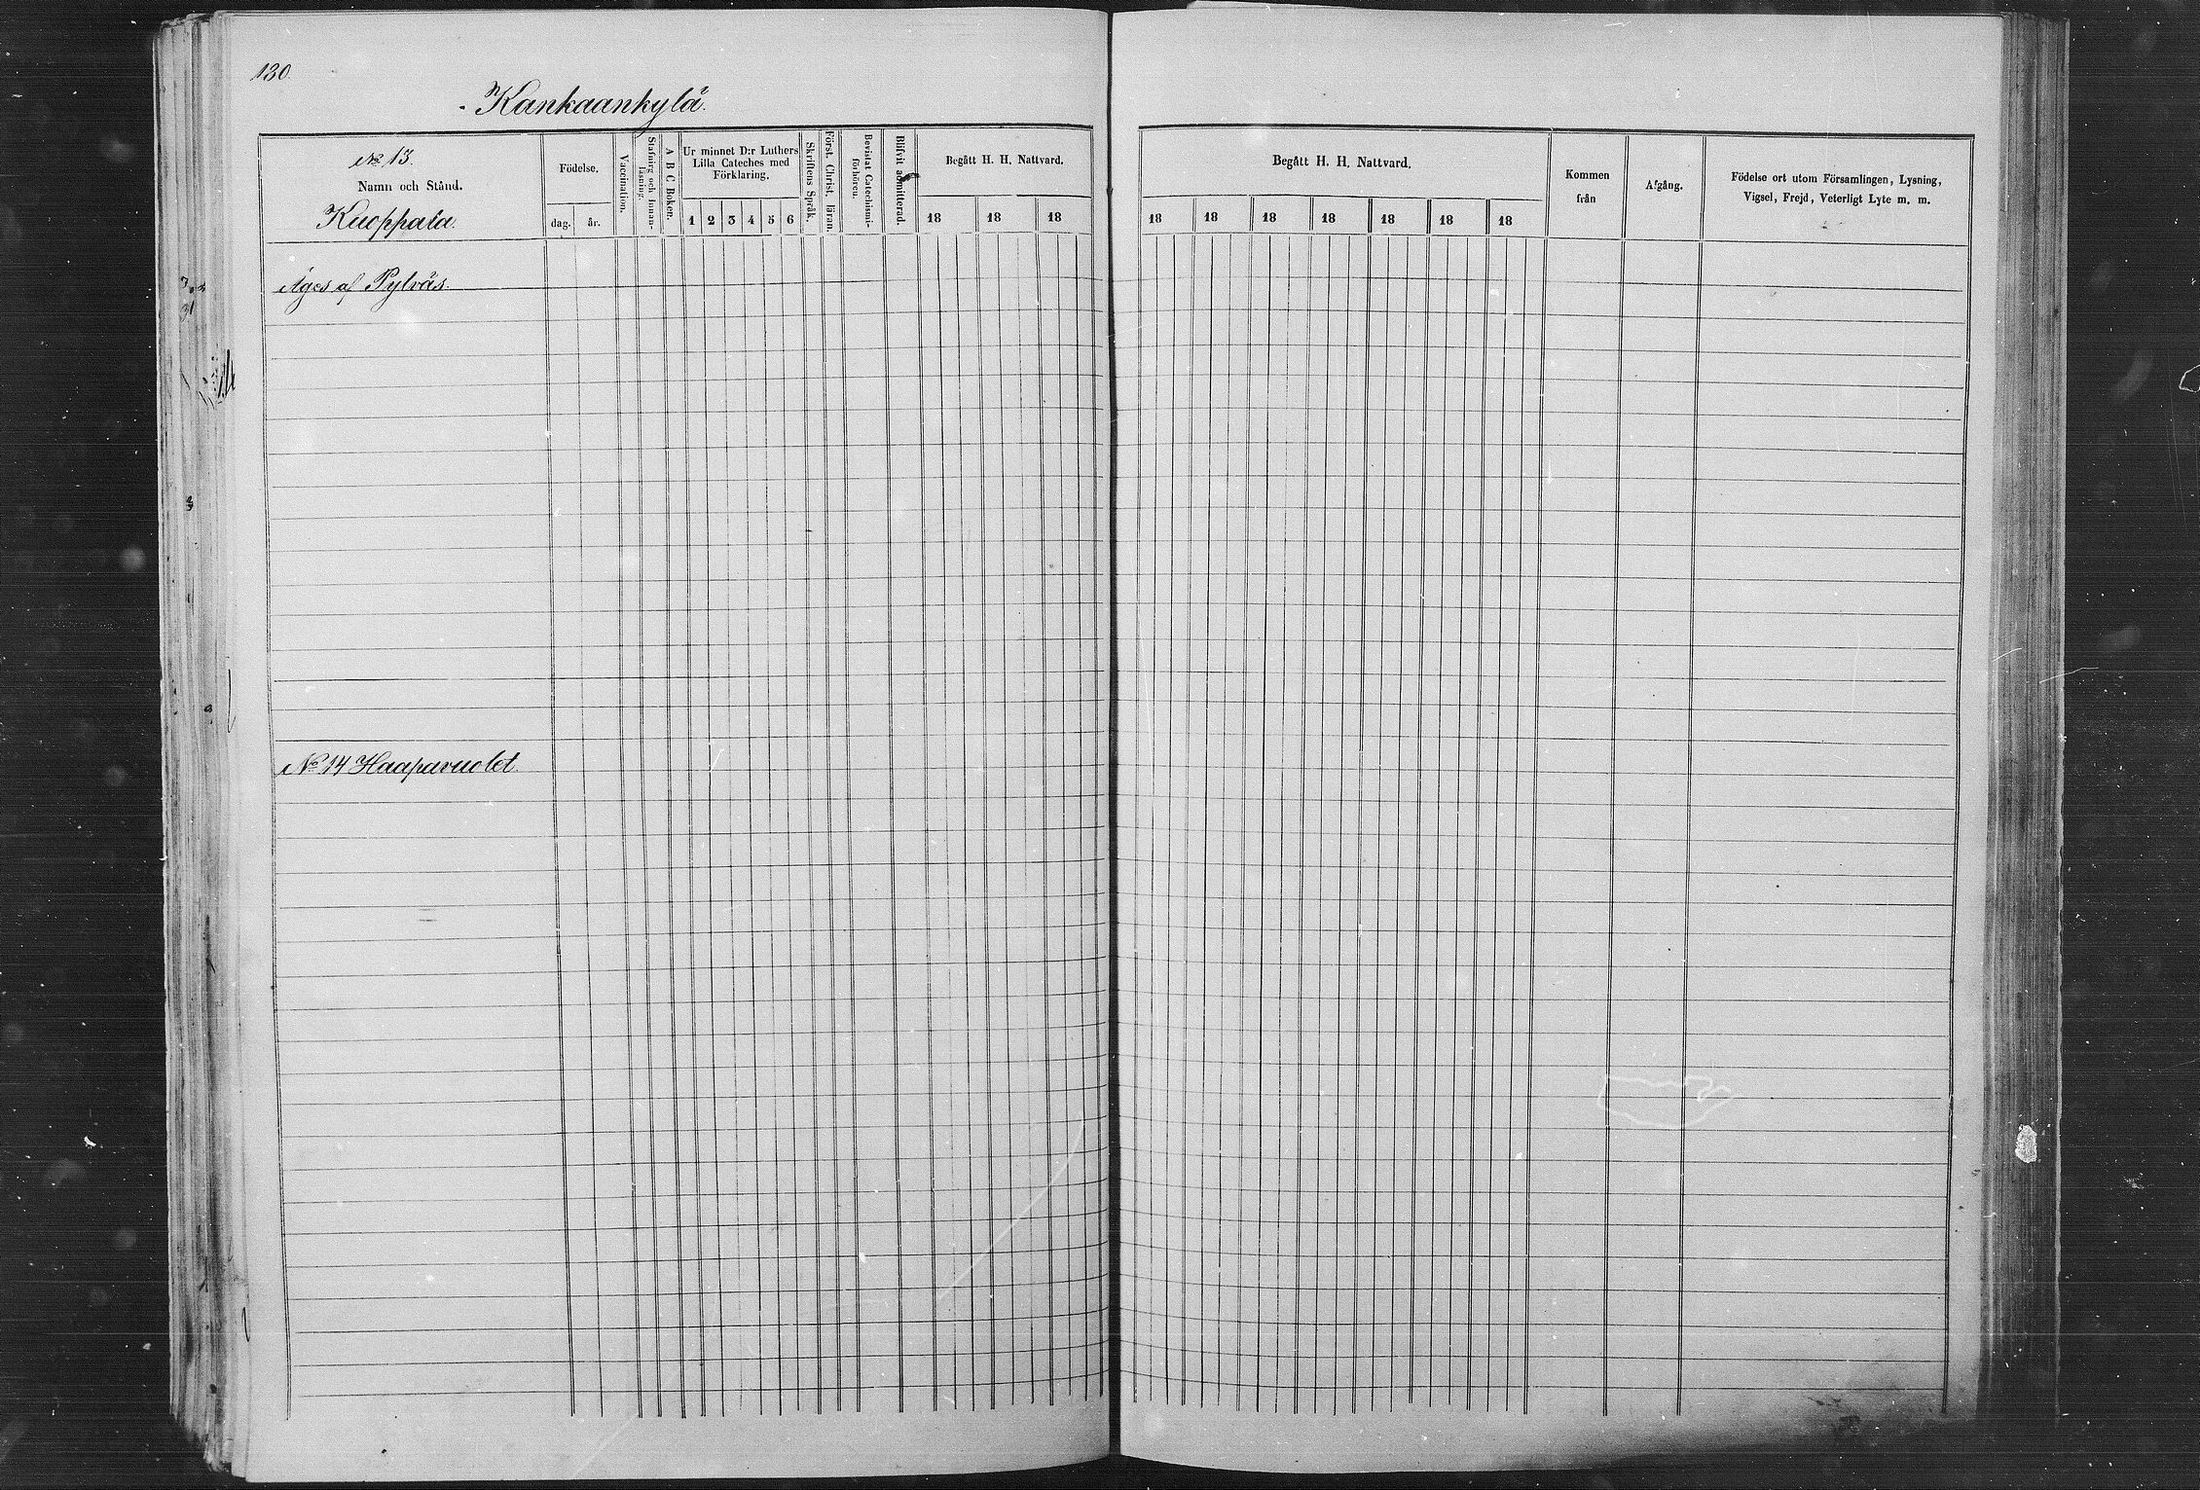 130.
Kankaankylä.
No 13.
Namn och Stånd.
Kuoppala.
Födelse.
dag.
år.
Vaccination.
Stafning och Innan-
läsning.
A B C Boken.
Ur minnet D:r Luthers
Lilla Cateches med
Förklaring.
1 2 3 4 5 6
Skriftens Språk.
Först. Christ. läran.
Bevistat Catechismi-
förhören.
Blifvit admitterad.
Begått H. H. Nattvard.
18 18 18
Begått H. H. Nattvard.
18 18 18 18 18 18 18
Kommen
från
Afgång.
Födelse ort utom Församlingen, Lysning,
Vigsel, Frejd, Veterligt Lyte m. m.
Äges af Pylväs.
No 14 Haapavuolet.